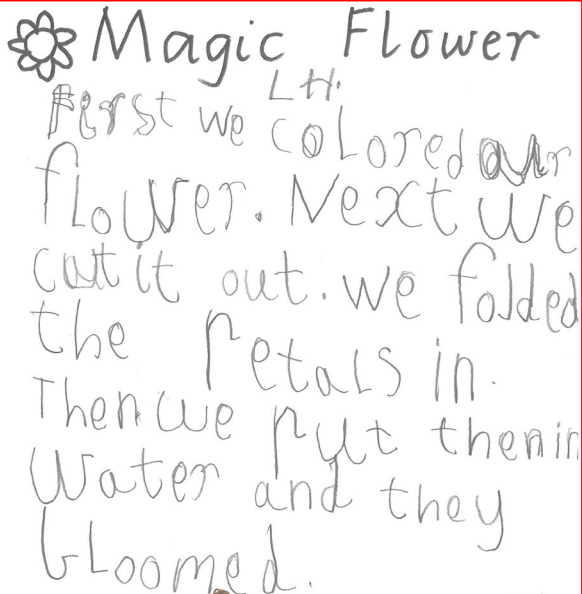 Magic Flower
L H.
First we colored our
flower. Next we
cut it out. we folded
the petals in.
Then we put then in
water and they
bloomed.